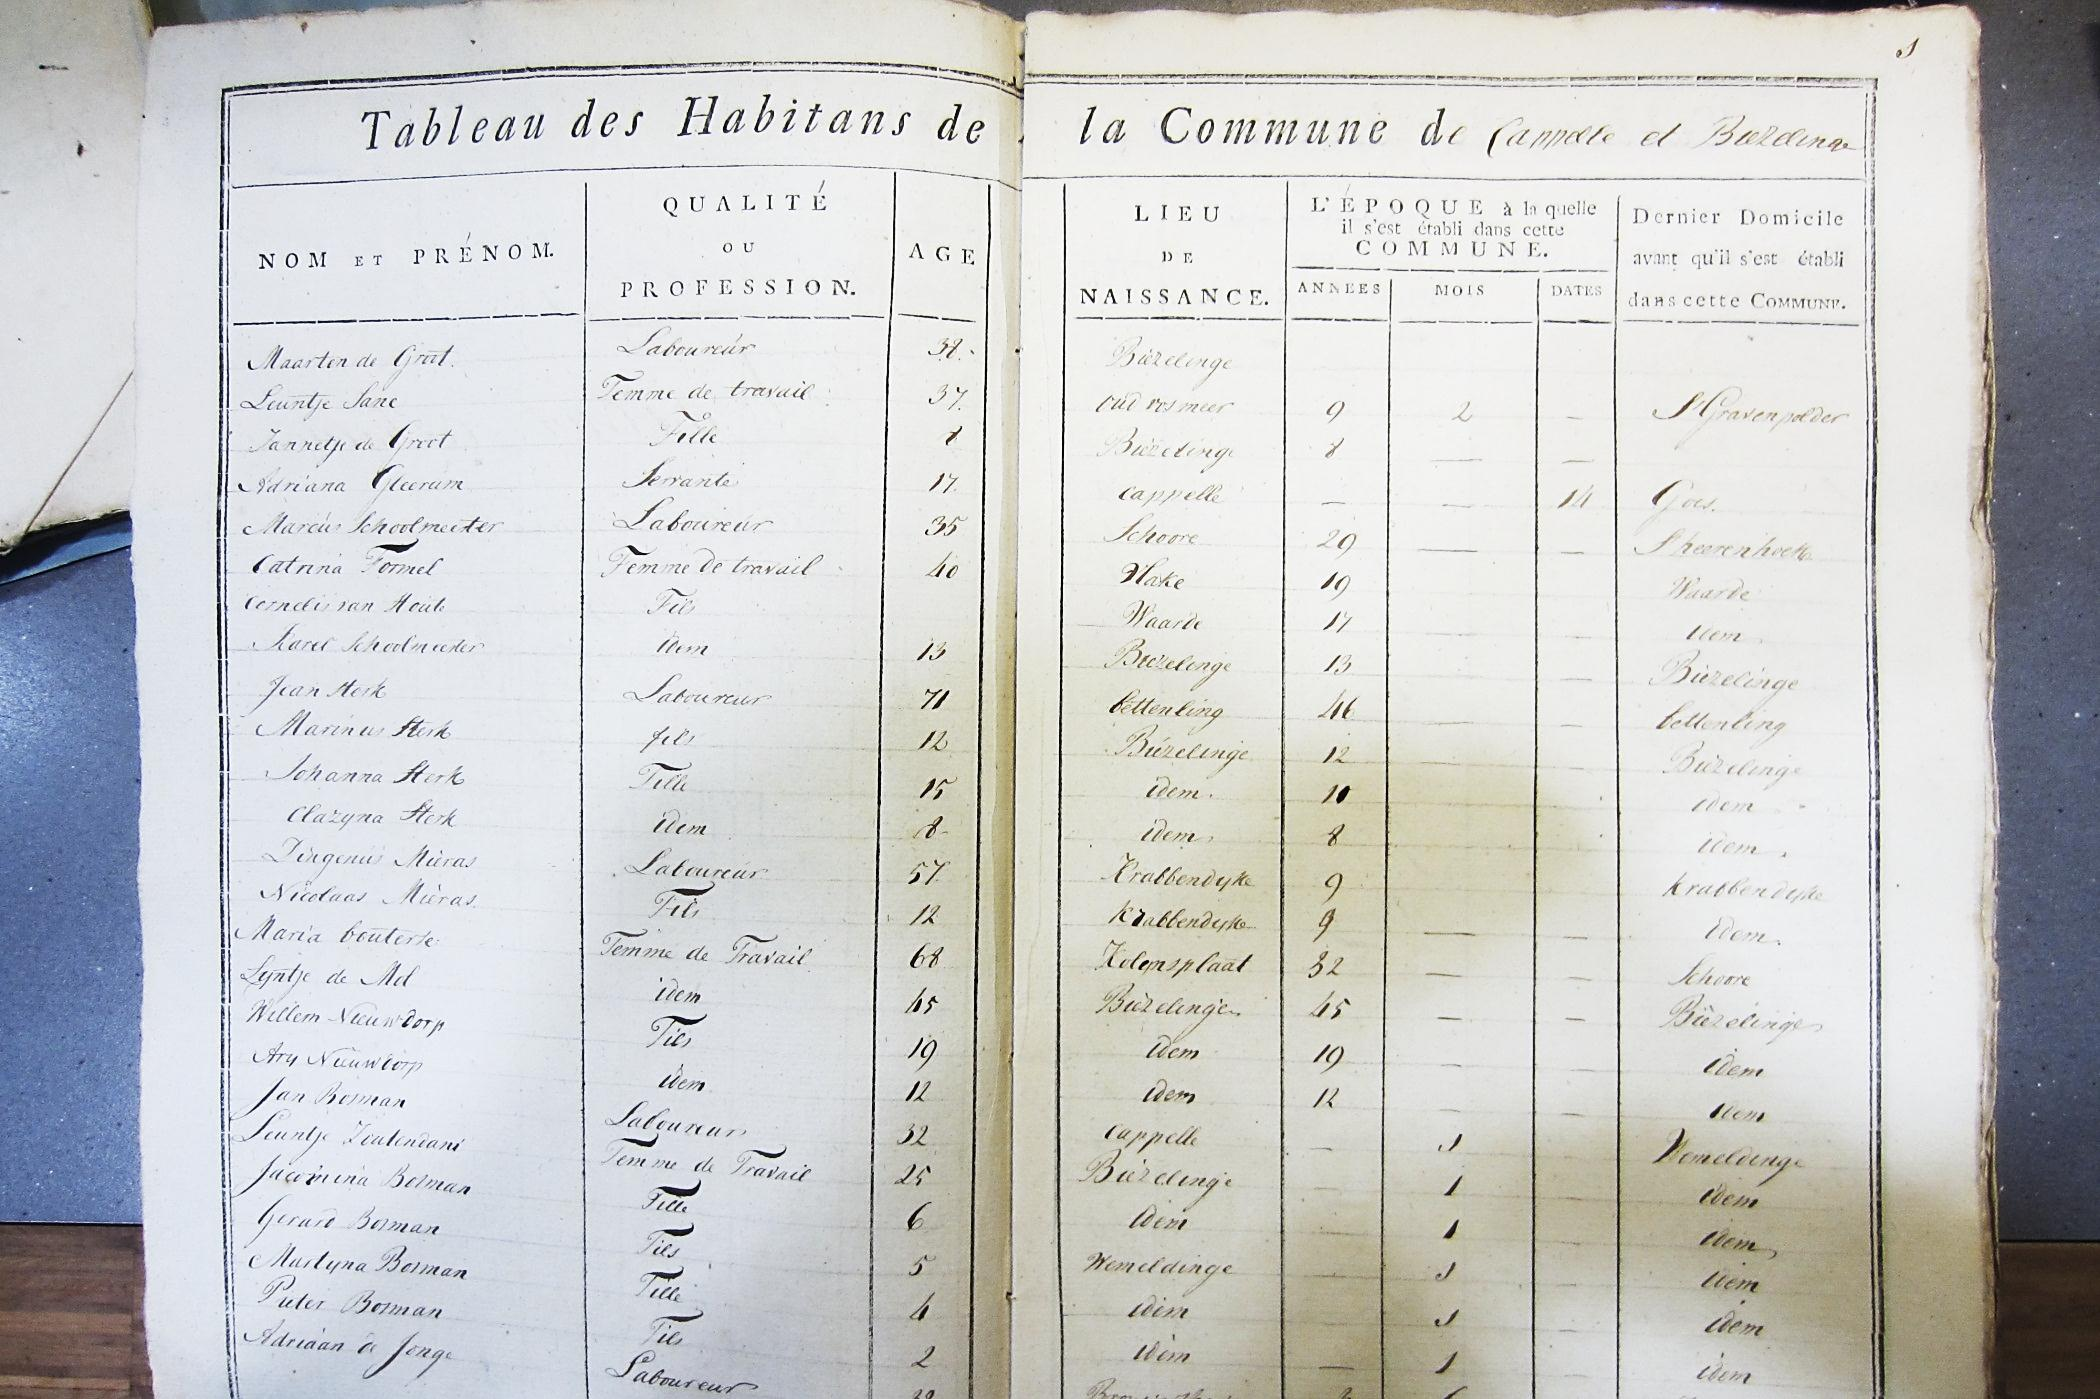 1
Tableau des Habitans de la Commune de Cappelle et Biezelinge
NOM ET PRÉNOM.
QUALITÉ
OU
PROFESSION.
AGE
LIEU
DE
NAISSANCE.
L'ÉPOQUE à la quelle
il s'est établi dans cette
COMMUNE.
ANNEES MOIS DATES
Dernier Domicile
avant qu'il s'est établi
dans cette COMMUNE.
Maarten de Groot. Laboureur 38. Biezelinge
Leuntje Sane Femme de travail 37. oud vosmeer 9 2 — S'Gravenpolder
Jannetje de Groot Fille 8 Biezelinge 8 — —
Adriana Gleerum Servante 17. Cappelle — — 14 Goes.
Marcus Schoolmeester Laboureur 35 Schoore 29 — — S'heerenhoek
Catrina Formel Femme de travail 40 Vlake 19 Waarde
Cornelis van Houte Fils Waarde 17 — idem
Karel Schoolmeester idem 13 Biezelinge 13 — Biezelinge
Jean Sterk Laboureur 71 Cettenling 46 — — Cettenling
Marinus Sterk fils 12 Biezelinge 12 — Biezelinge
Johanna Sterk Fille 15 idem. 10 idem
Clazyna Sterk idem 8 idem. 8 idem.
Dingenis Mieras Laboureur 57 Krabbendyke 9 Krabbendyke
Nicolaas Mieras Fils 12 Krabbendyke 9 — — idem.
Maria bouterse Femme de Travail 68 Kolynsplaat 32 — — Schoore
Lyntje de Mol idem 45 Biezelinge 45 — — Biezelinge
Willem Nieuwdorp Fils 19 idem 19 — — idem
Ary Nieuwdorp idem 12 idem 12 — — idem
Jan Bosman Laboureur 32 Cappelle — 1 — Wemeldinge
Leuntje Zoutendam Femme de Travail 25 Biezelinge — 1 — idem
Jacomina Bosman Fille 6 idem 1 — idem
Gerard Bosman Fils 5 Wemeldinge — 1 — idem
Martyna Bosman Fille 4 idem — 1 — idem
Pieter Bosman Fils 2 idem — 1 — idem
Adriaan de Jonge Laboureur